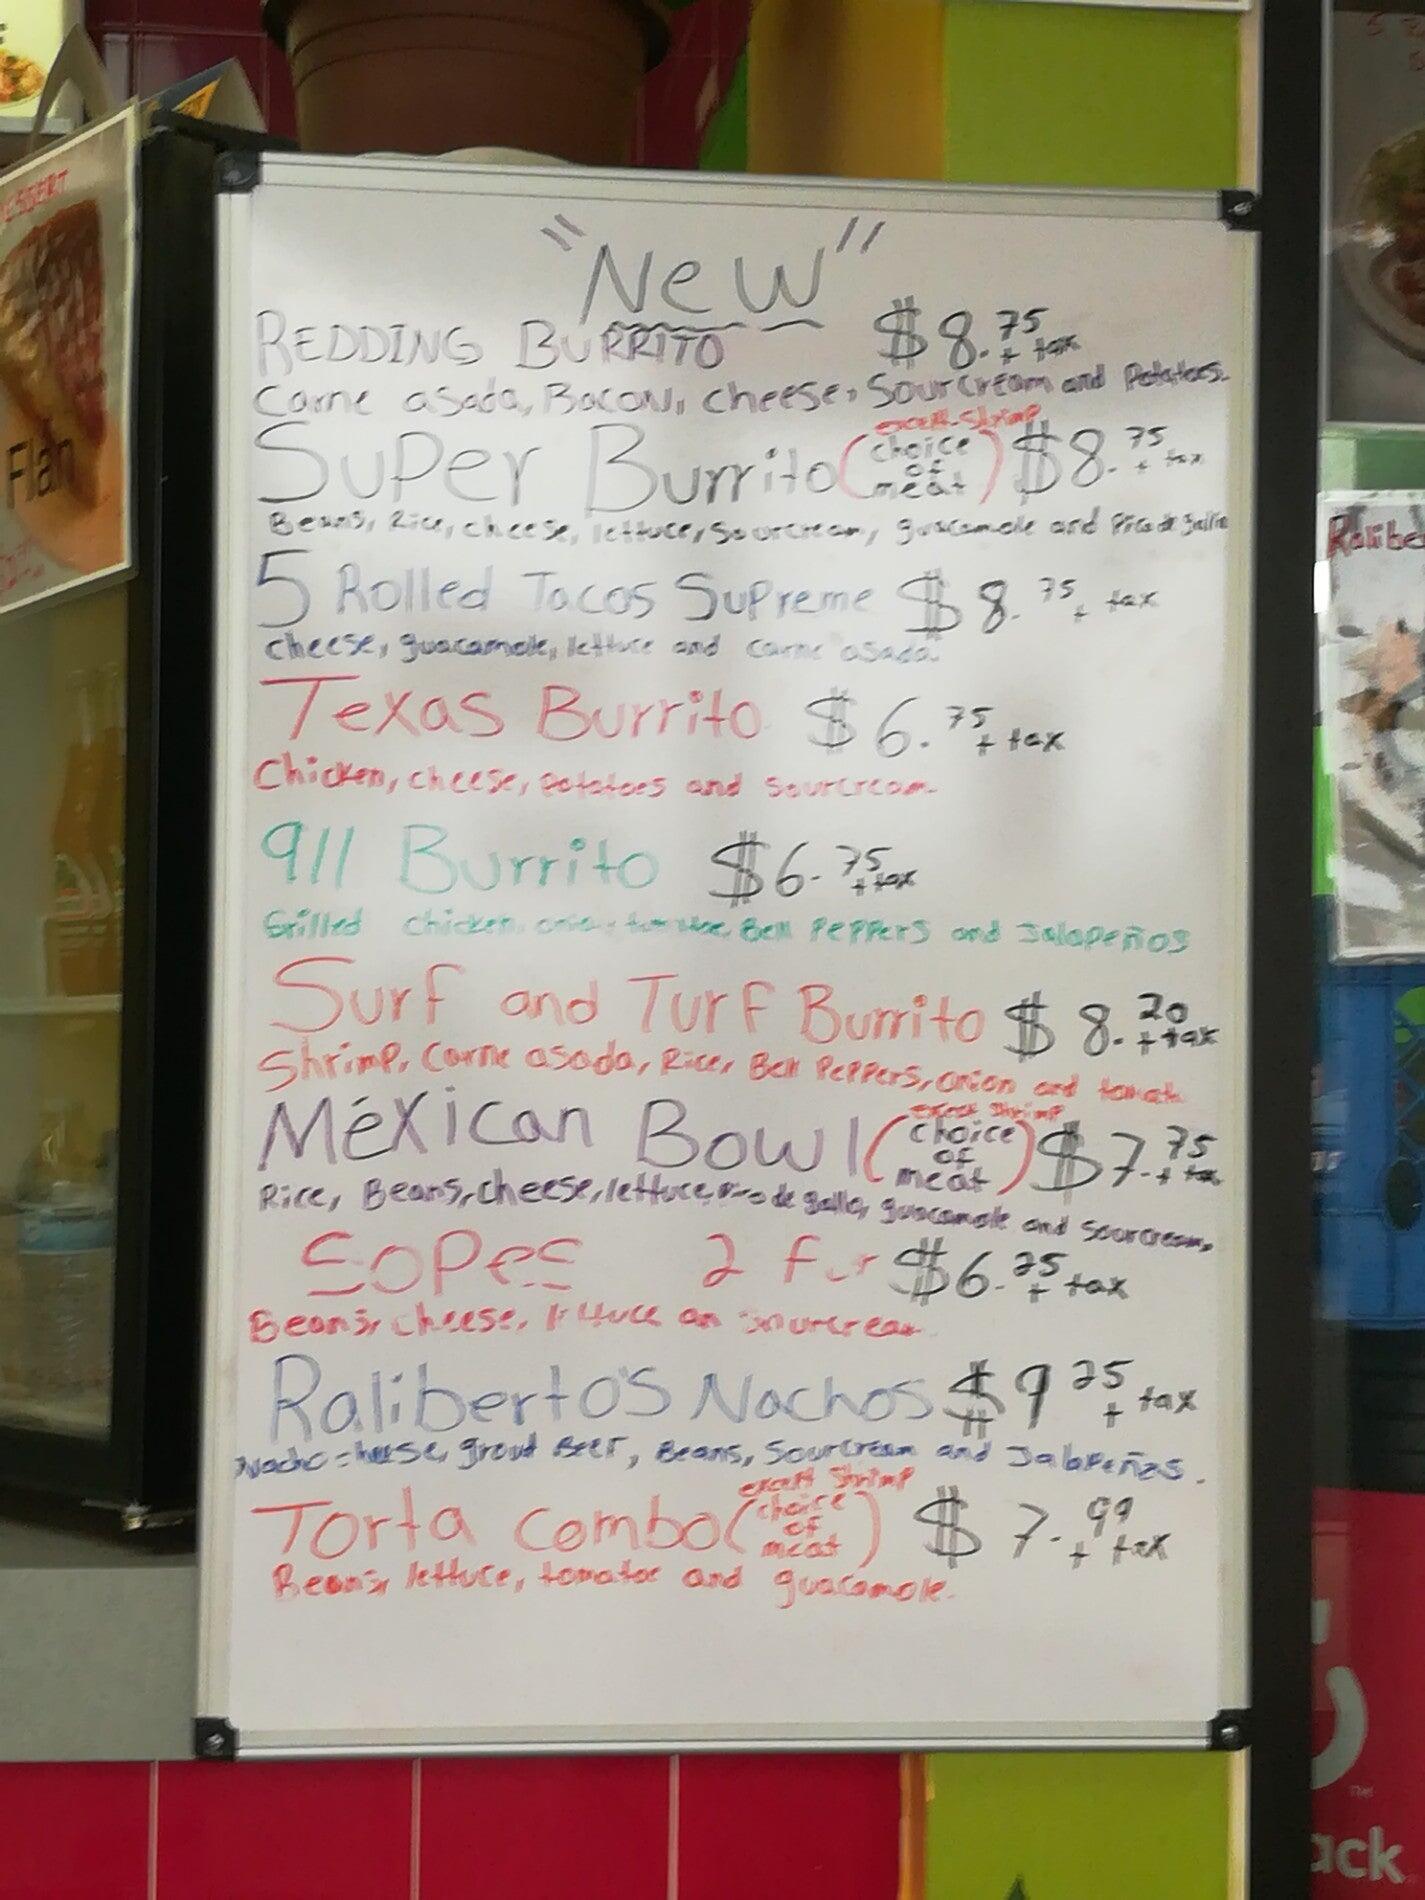 "New"
REDDING BURRITO $8.75 + tax
Carne asada, Bacon, cheese, Sourcream and Potatoes.
except Shrimp
Super Burrito (choice of meat) $8.75 + tax
Beans, Rice, cheese, lettuce, Sourcream, guacamole and Pico de gallo
5 Rolled Tacos Supreme $8.75 + tax
cheese, guacamole, lettuce and carne asada.
Texas Burrito $6.75 + tax
Chicken, cheese, Potatoes and Sourcream.
911 Burrito $6.75 + tax
Grilled chicken, Bell Peppers and Jalapeños
Surf and Turf Burrito $8.20 + tax
Shrimp, Carne asada, Rice, Bell Peppers, onion and
except Shrimp
Méxican Bowl (choice of meat) $7.75 + tax
Rice, Beans, cheese, lettuce, Pico de gallo, guacamole and sourcream,
Sopes 2 For $6.25 + tax
Beans, cheese, lettuce an sourcream
Raliberto's Nachos $9 25 + tax
Nacho cheese, Beef, Beans, Sourcream and Jalapeños.
except Shrimp
Torta Combo (choice of meat) $7.99 + tax
Beans, lettuce, tomatoe and guacamole.
Flan
ack